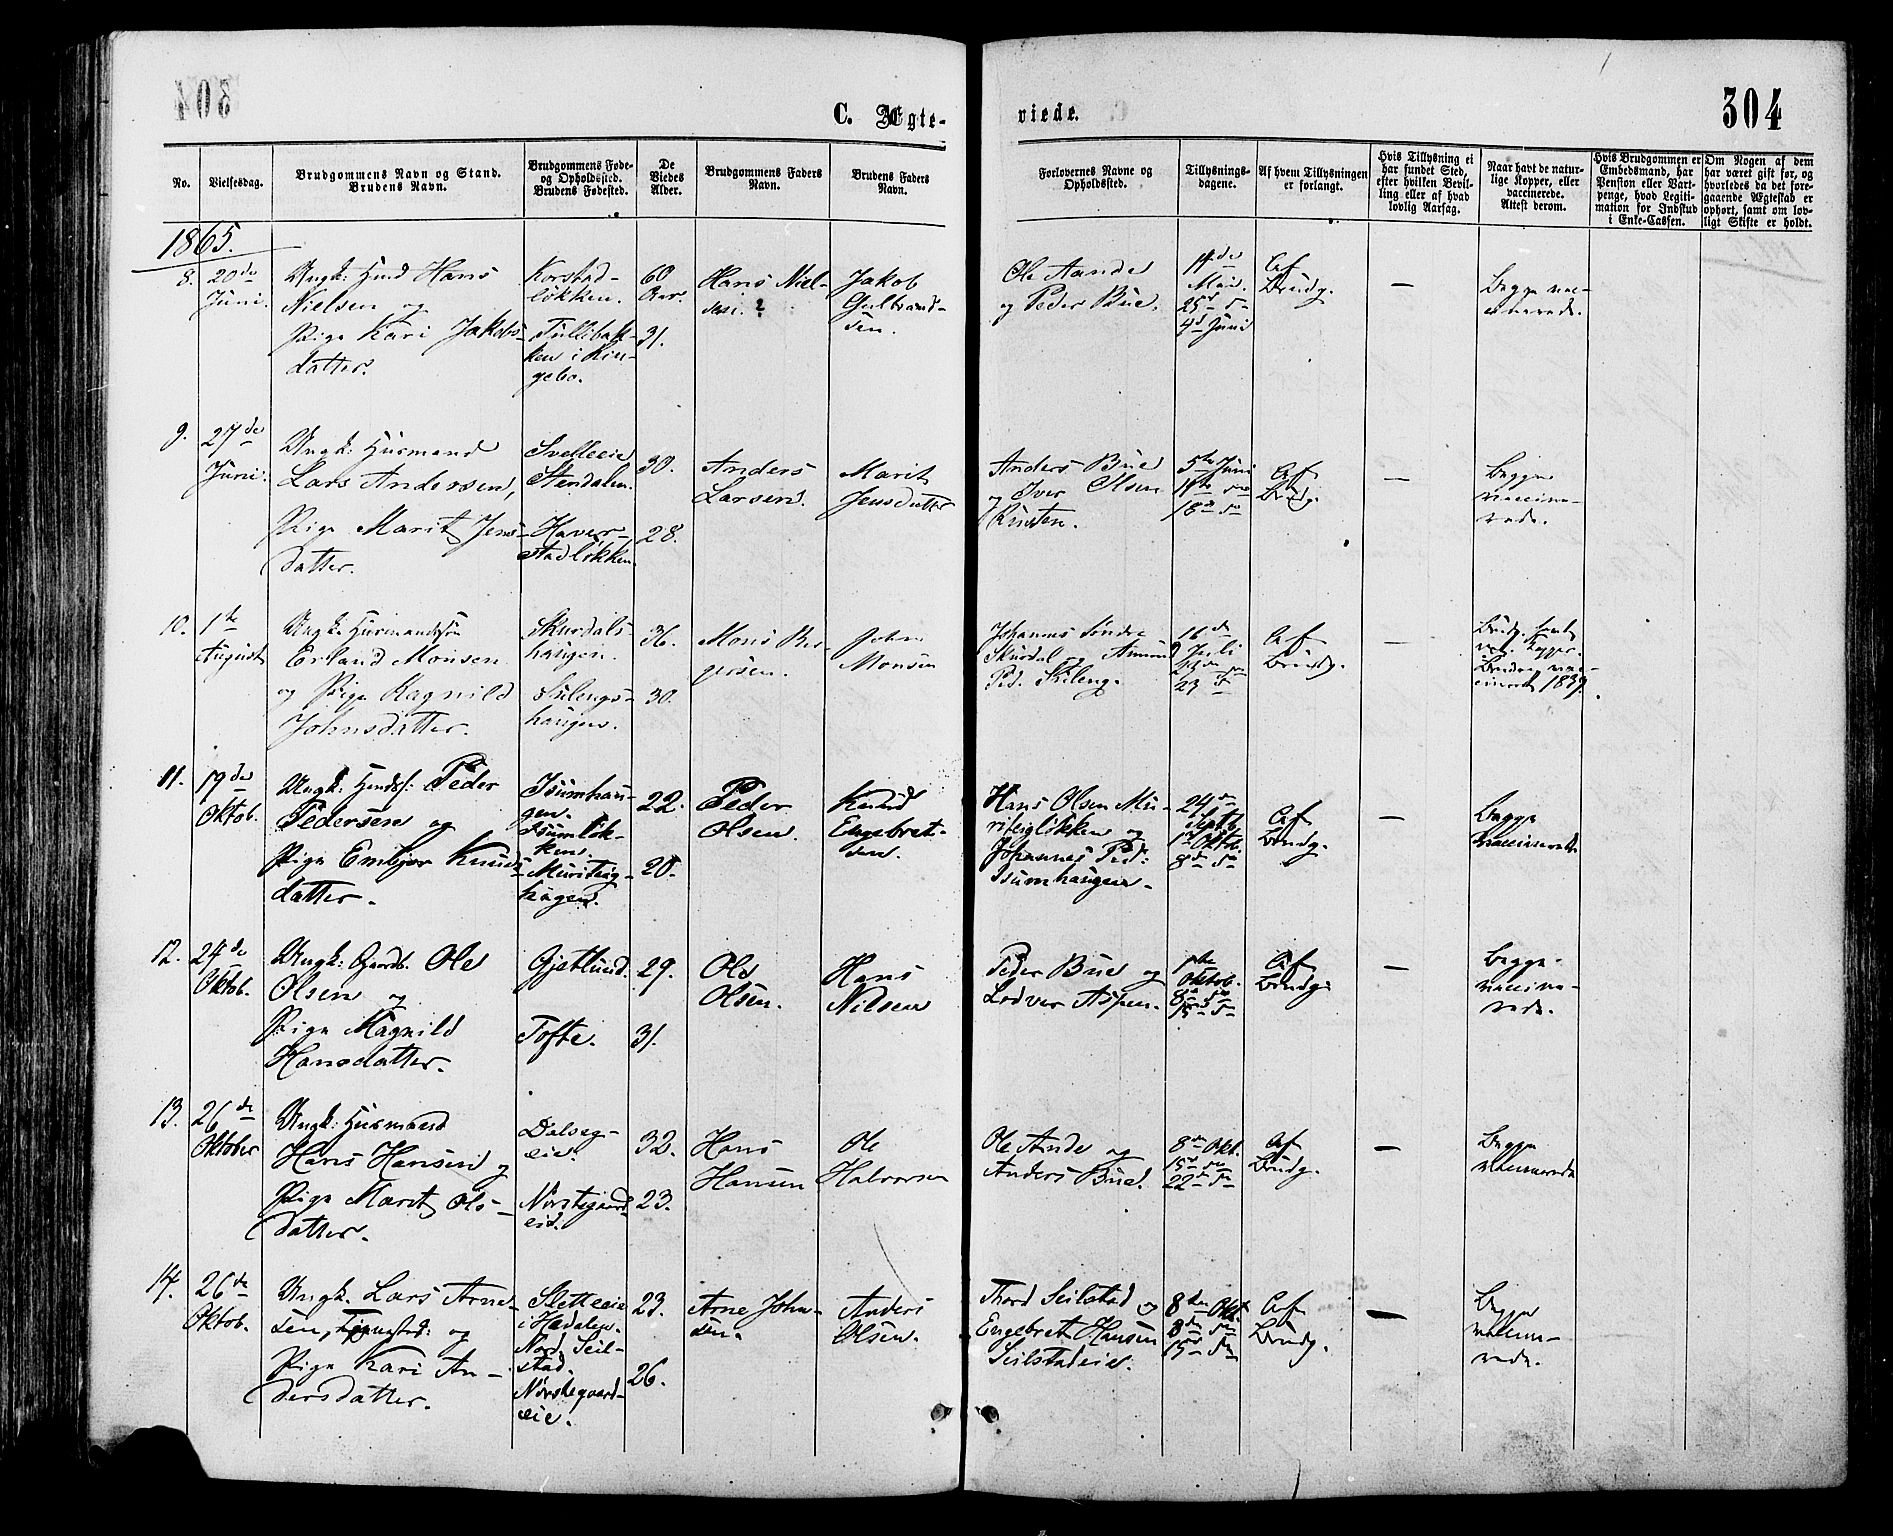 304
C. Ægte-
viede.
No.
Vielsesdag.
Brudgommens Navn og Stand.
Brudens Navn.
Brudgommens Føde-
og Opholdssted.
Brudens Fødested.
De
Viedes
Alder.
Brudgommens Faders
Navn.
Brudens Faders
Navn.
Forlovernes Navne og
Opholdssted.
Tillysnings-
dagene.
Af hvem Tillysningen
er forlangt.
Hvis Tillysning ei
har fundet Sted,
efter hvilken Bevil-
ling eller af hvad
lovlig Aarsag.
Naar havt de natur-
lige Kopper, eller
vaccinerede.
Attest derom.
Hvis Brudgommen er
Embedsmand, har
Pension eller Vart-
penge, hvad Legiti-
mation for Indskud
i Enke-Cassen.
Om Nogen af dem
har været gift før, og
hvorledes da det fore-
gaaende Ægteskab er
ophørt, samt om lov-
ligt Skifte er holdt.
1865.
8.
20de
Juni.
Ungk: Hmd Hans
Nielsen og
Pige Kari Jakobs-
datter.
Korstad-
løkken.
Tullibak-
ken i Rin-
gebo.
60
Aar.
31.
Hans Niel-
sen.
Jakob
Gulbrand-
sen.
Ole Aande
og Peder Bue.
14de
Mai.
25de do
4de Juni
Af
Brudg.
—
Begge vac-
cinerede.
9.
27de
Juni.
Ungk: Husmand
Lars Andersen,
Pige Marit Jens-
datter.
Svelleeie
Stendalen.
Haver-
stadløkken.
30.
28.
Anders
Larsen.
Marit
Jensdatter
Anders Bue
og Iver Olsen
Rusten.
5te Juni
11te do
18de do
Af
Brudg.
—
Begge
vaccine-
rede.
10.
1ste
August
Ungk. Husmandssøn
Erland Monsen
og Pige Ragnild
Johnsdatter.
Skurdals-
haugen.
Skilengs-
haugen.
36.
30.
Mons Bir-
gersen.
John
Monsen
Johannes Søndre
Skurdal og Amund
Ped. Skileng.
16de
Juli
23 do
Af
Brudg.
—
Brudg. havt
nat. Kopper.
Bruden vac-
cineret 1839.
11.
19de
Oktob.
Ungk: Hmdss: Peder
Pedersen og
Pige Embjør Knuds-
datter.
Isumhau-
gen.
Isumløk-
ken.
Muriteig-
haugen.
22.
20.
Peder
Olsen.
Knud
Engebret-
sen.
Hans Olsen Mu-
riteigløkken og
Johannes Ped:
Isumhaugen.
24de
Septb.
1ste Oktob.
8de do
Af
Brudg.
—
Begge
vaccinerede.
12.
24de
Oktob.
Ungk: Gaardb. Ole
Olsen og
Pige Magnild
Hansdatter.
Gjetlund.
Tofte.
29.
31.
Ole
Olsen.
Hans
Nilsen
Peder Bue og
Lodver Aspen.
1ste
Oktob.
8de do
15de do
Af
Brudg.
—
Begge
vaccine-
rede.
13.
26de
Oktober
Ungk: Husmand
Hans Hansen og
Pige Marit Ols-
datter.
Dalseg-
eie.
Norstegaard-
eie.
32.
23.
Hans
Hansen
Ole
Halvorsen
Ole Ande og
Anders Bue.
8de Okt.
15de do
22de do
Af
Brudg.
—
Begge
vaccinerede
14.
26de
Oktob.
Ungk. Lars Arne-
sen, og
Pige Kari An-
dersdatter.
Sletteeie
i Hedalen.
Nord. Seil-
stad.
Norstegaard-
eie.
23.
26.
Arne John-
sen.
Anders
Olsen.
Thord Seilstad og
Engebret Hansen
Seilstadeie.
8de Okt
8de do
15de do
Af
Brudg.
—
Begge
vaccine-
rede.